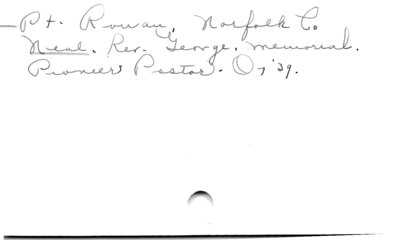 Pt. Rowan, Norfolk Co.
Neal. Rev. George. memorial.
Pioneer Pastor. O 7 '39.